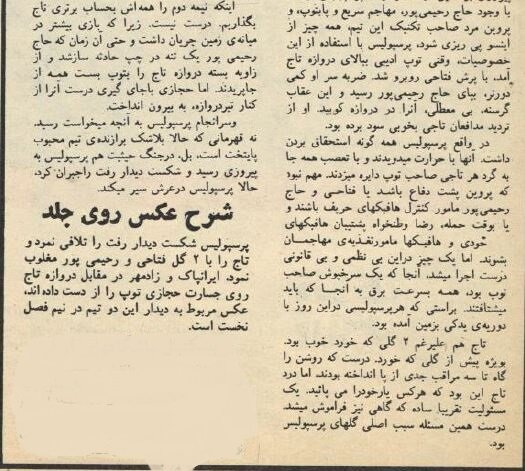 با وجود حاج رحیمی‌پور، مهاجم سریع و باهوش، و
پروین مرد صاحب تکنیک این تیم، همه چیز از
اینسو پی ریزی شود، پرسپولیس با استفاده از این
خصوصیات، وقتی توپ ادیبی ببالای دروازه تاج
آمد، با پرش فتاحی روبرو شد. ضربه سر او کمی
دورتر، بپای حاج رحیمی‌پور رسید و این عقاب
گرسنه، بی معطلی، آنرا در دروازه کوبید. او از
تردید مدافعان تاجی بخوبی سود برده بود.
در واقع پرسپولیس همه گونه استحقاقی بردن
داشت. آنها با حرارت میدویدند و با تعصب همه جا
به گرد هر تاجی صاحب توپ دایره میزدند. مهم نبود
که پروین پشت دفاع باشد یا فتاحی و حاج
رحیمی‌پور مامور کنترل هافبکهای حریف باشند و
یا بوقت حمله، رضا وطنخواه پشتیبان هافبکهای
خودی و هافبکها مامور تغذیه‌ی مهاجمان
بشوند. اما یک چیز دراین بی نظمی و بی قانونی
درست اجرا میشد. آنجا که یک سرخپوش صاحب
توپ بود، همه بسرعت برق به آنجا که باید
میشتافتند. براستی که هر پرسپولیسی دراین روز با
دوریه‌ی یدکی بزمین آمده بود.
تاج هم علیرغم ۲ گلی که خورد خوب بود.
بویژه پیش از گلی که خورد. درست که روشن را
گاه تا سه مراقب جدی از پا انداخته بودند. اما درد
تاج این بود که هرکس یارخودرا می پائید. یک
مسئولیت تقریبا ساده که گاهی نیز فراموش میشد.
درست همین مسئله سبب اصلی گلهای پرسپولیس
بود.
اینکه نیمه دوم را همه‌اش بحساب برتری تاج
بگذاریم، درست نیست. زیرا که بازی بیشتر در
میانه‌ی زمین جریان داشت و حتی آن زمان که حاج
رحیمی پور یک تنه در چپ حادثه سازشد و از
زاویه بسته دروازه تاج را بتوپ بست همه از
جاپریدند. اما حجازی باجای گیری درست آنرا از
کنار تیردروازه، به بیرون انداخت.
وسرانجام پرسپولیس به آنچه میخواست رسید.
نه قهرمانی که حالا بلاشک برازنده‌ی تیم محبوب
پایتخت است، بل، درجنگ حیثیت هم پرسپولیس به
پیروزی رسید و شکست دیدار رفت راجبران کرد.
حالا پرسپولیس درعرش سیر میکند.
شرح عکس روی جلد
پرسپولیس شکست دیدار رفت را تلافی نمود و
تاج را با ۲ گل فتاحی و رحیمی پور مغلوب
نمود. ایرانپاک و زادمهر در مقابل دروازه تاج
روی جسارت حجازی توپ را از دست داده‌اند،
عکس مربوط به دیدار این دو تیم در نیم فصل
نخست است.